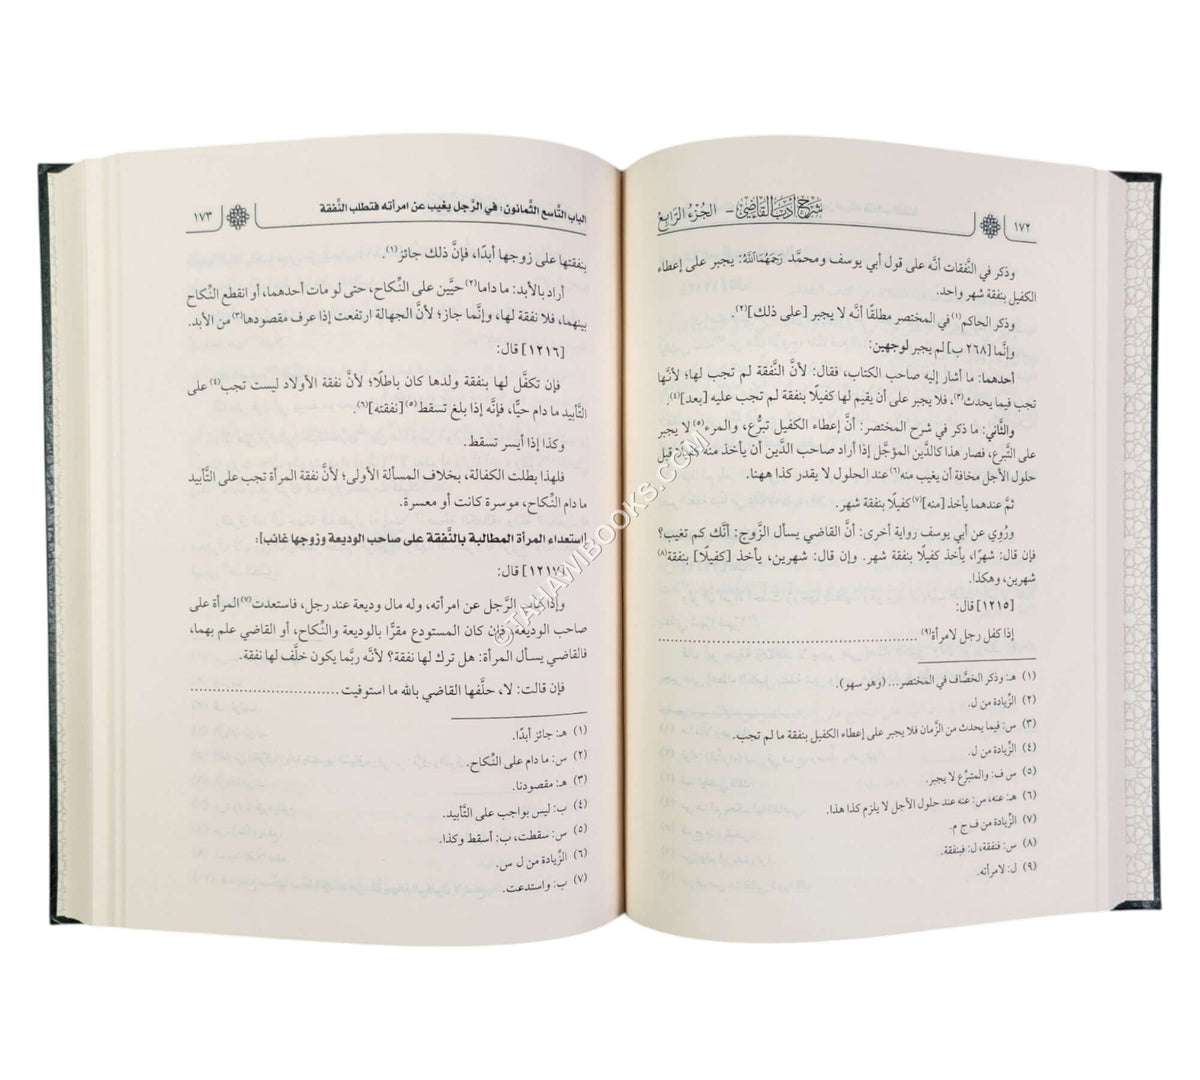 ١٧٢ شرح أدب القاضي – الجزء الرابع
وذكر في النَّفقات أنَّه على قول أبي يوسف ومحمَّد رَحِمَهُمَااللَّهُ: يجبر على إعطاء
الكفيل بنفقة شهر واحد.
وذكر الحاكم(١) في المختصر مطلقًا أنَّه لا يجبر [على ذلك](٢).
وإنَّما [٢٦٨ ب] لم يجبر لوجهين:
أحدهما: ما أشار إليه صاحب الكتاب، فقال: لأنَّ النَّفقة لم تجب لها؛ لأنَّها
تجب فيما يحدث(٣)، فلا يجبر على أن يقيم لها كفيلًا بنفقة لم تجب عليه [بعد](٤).
والثَّاني: ما ذكر في شرح المختصر: أنَّ إعطاء الكفيل تبرُّع، والمرء(٥) لا يجبر
على التَّبرع، فصار هذا كالدَّين المؤجَّل إذا أراد صاحب الدَّين أن يأخذ منه كفيلًا قبل
حلول الأجل مخافة أن يغيب منه(٦) عند الحلول لا يقدر كذا ههنا.
ثمَّ عندهما يأخذ [منه](٧) كفيلًا بنفقة شهر.
وروُي عن أبي يوسف رواية أخرى: أنَّ القاضي يسأل الزَّوج: أنَّك كم تغيب؟
فإن قال: شهرًا، يأخذ كفيلًا بنفقة شهر. وإن قال: شهرين، يأخذ [كفيلًا] بنفقة(٨)
شهرين، وهكذا.
[١٢١٥] قال:
إذا كفل رجل لامرأة(٩) ........................
(١) هـ: وذكر الخصَّاف في المختصر... (وهو سهو).
(٢) الزِّيادة من ل.
(٣) س: فيما يحدث من الزَّمان فلا يجبر على إعطاء الكفيل بنفقة ما لم تجب.
(٤) الزِّيادة من ل.
(٥) س ف: والمتبرِّع لا يجبر.
(٦) هـ: عنه، س: عنه عند حلول الأجل لا يلزم كذا هذا.
(٧) الزِّيادة من ف ج م.
(٨) س: فنفقة، ل: فبنفقة.
(٩) ل: لامرأته.
الباب التَّاسع الثَّمانون: في الرَّجل يغيب عن امرأته فتطلب النَّفقة ١٧٣
بنفقتها على زوجها أبدًا، فإنَّ ذلك جائز(١).
أراد بالأبد: ما داما(٢) حيَّين على النِّكاح، حتى لو مات أحدهما، أو انقطع النِّكاح
بينهما، فلا نفقة لها، وإنَّما جاز؛ لأنَّ الجهالة ارتفعت إذا عرف مقصودها(٣) من الأبد.
[١٢١٦] قال:
فإن تكفَّل لها بنفقة ولدها كان باطلًا؛ لأنَّ نفقة الأولاد ليست تجب(٤) على
التَّأبيد ما دام حيًّا، فإنَّه إذا بلغ تسقط(٥) [نفقته](٦).
وكذا إذا أيسر تسقط.
فلهذا بطلت الكفالة، بخلاف المسألة الأولى؛ لأنَّ نفقة المرأة تجب على التَّأبيد
ما دام النِّكاح، موسرة كانت أو معسرة.
[استعداء المرأة المطالبة بالنَّفقة على صاحب الوديعة وزوجها غائب]:
[١٢١٧] قال:
وإذا غاب الرَّجل عن امرأته، وله مال وديعة عند رجل، فاستعدت(٧) المرأة على
صاحب الوديعة، فإن كان المستودع مقرًّا بالوديعة والنِّكاح، أو القاضي علم بهما،
فالقاضي يسأل المرأة: هل ترك لها نفقة؟ لأنَّه ربَّما يكون خلَّف لها نفقة.
فإن قالت: لا، حلَّفها القاضي بالله ما استوفيت ........................
(١) هـ: جائز أبدًا.
(٢) س: ما دام على النِّكاح.
(٣) هـ: مقصودنا.
(٤) ب: ليس بواجب على التَّأبيد.
(٥) س: سقطت، ب: أسقط وكذا.
(٦) الزِّيادة من ل س.
(٧) ب: واستدعت.
©TAHAWIBOOKS.COM